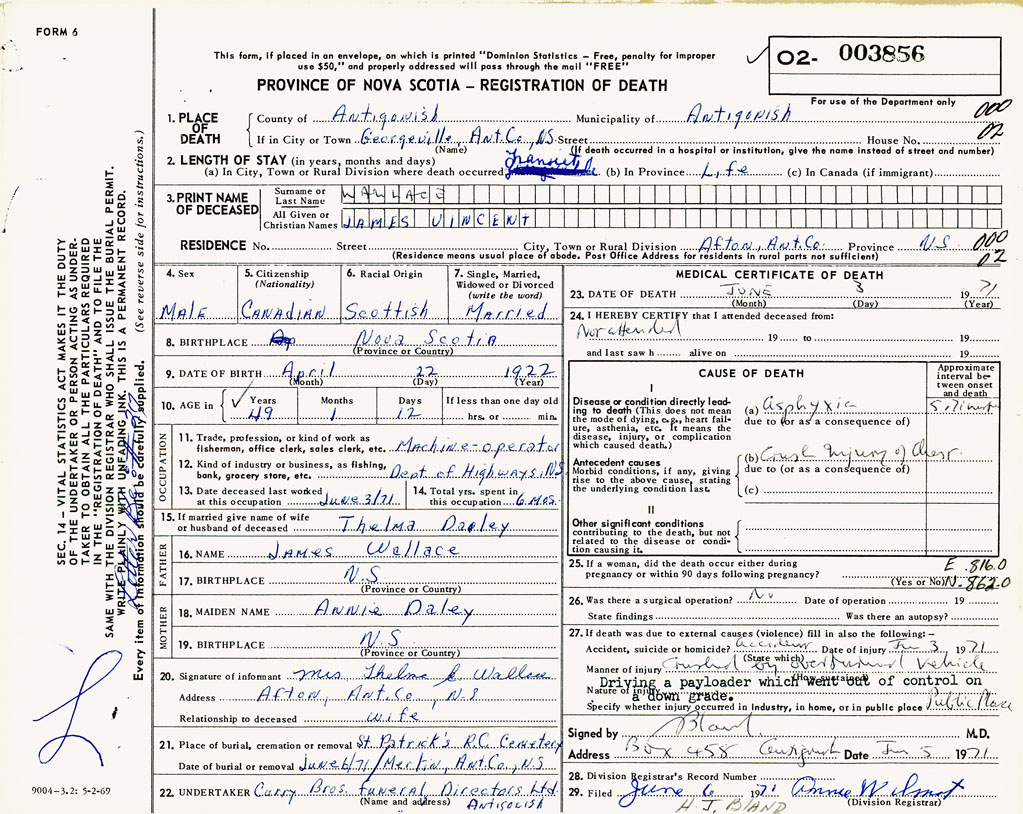 FORM 6
This form, if placed in an envelope, on which is printed "Dominion Statistics – Free, penalty for improper
use $50," and properly addressed will pass through the mail "FREE"
02- 003856
PROVINCE OF NOVA SCOTIA – REGISTRATION OF DEATH
For use of the Department only
000
02
1. PLACE OF DEATH
County of Antigonish Municipality of Antigonish
If in City or Town Georgeville, Ant.Co., N.S. Street House No.
(Name) (If death occurred in a hospital or institution, give the name instead of street and number)
2. LENGTH OF STAY (in years, months and days)
(a) In City, Town or Rural Division where death occurred Transient (b) In Province Life (c) In Canada (if immigrant)
3. PRINT NAME OF DECEASED
Surname or Last Name WALLACE
All Given or Christian Names JAMES VINCENT
RESIDENCE No. Street City, Town or Rural Division Afton, Ant.Co. Province N.S. 000
(Residence means usual place of abode. Post Office Address for residents in rural parts not sufficient) 02
4. Sex
MALE
5. Citizenship
(Nationality)
CANADIAN
6. Racial Origin
Scottish
7. Single, Married,
Widowed or Divorced
(write the word)
Married
8. BIRTHPLACE Nova Scotia
(Province or Country)
9. DATE OF BIRTH April 22 1922
(Month) (Day) (Year)
10. AGE in Years Months Days If less than one day old
49 1 12 hrs. or min.
OCCUPATION
11. Trade, profession, or kind of work as
fisherman, office clerk, sales clerk, etc. Machine-operator
12. Kind of industry or business, as fishing,
bank, grocery store, etc. Dept of Highways, N.S.
13. Date deceased last worked
at this occupation June 3/71
14. Total yrs. spent in
this occupation 6 mos.
15. If married give name of wife
or husband of deceased Thelma Dagley
FATHER
16. NAME JAMES Wallace
17. BIRTHPLACE N.S
(Province or Country)
MOTHER
18. MAIDEN NAME ANNIE Daley
19. BIRTHPLACE N.S
(Province or Country)
20. Signature of informant Mrs Thelma Wallace
Address Afton, Ant.Co, N.S
Relationship to deceased wife
21. Place of burial, cremation or removal St. Patrick's R.C. Cemetery
Date of burial or removal June 6/71 Ant.Co., N.S.
22. UNDERTAKER Curry Bros. Funeral Directors Ltd.
(Name and address) ANTIGONISH
MEDICAL CERTIFICATE OF DEATH
23. DATE OF DEATH JUNE 3 1971
(Month) (Day) (Year)
24. I HEREBY CERTIFY that I attended deceased from:
Not attended 19 to 19
and last saw h alive on 19
CAUSE OF DEATH
Approximate
interval between onset
and death
I
Disease or condition directly leading to death (This does not
mean the mode of dying, e.g., heart failure, asthenia, etc. It means the
disease, injury, or complication
which caused death.)
(a) Asphyxia
due to (or as a consequence of)
Antecedent causes
Morbid conditions, if any, giving
rise to the above cause, stating
the underlying condition last.
(b) Crush Injury of Chest
due to (or as a consequence of)
(c)
II
Other significant conditions
contributing to the death, but not
related to the disease or condition causing it.
25. If a woman, did the death occur either during
pregnancy or within 90 days following pregnancy?
(Yes or No)
E. 816.0
N. 862.0
26. Was there a surgical operation? No Date of operation 19
State findings Was there an autopsy?
27. If death was due to external causes (violence) fill in also the following: –
Accident, suicide or homicide? accident Date of injury Jun 3 1971
(State which)
Manner of injury Crushed by overturned vehicle
(How sustained)
Driving a payloader which went out of control on
Nature of injury a down grade.
Specify whether injury occurred in industry, in home, or in public place Public Place
Signed by Bland M.D.
Address Box 458 Antigonish Date Jun 5 1971
28. Division Registrar's Record Number
29. Filed June 6 1971 Annie Wilmot
(Division Registrar)
H. J. BLAND
SEC. 14 – VITAL STATISTICS ACT MAKES IT THE DUTY
OF THE UNDERTAKER OR PERSON ACTING AS UNDER-
TAKER TO OBTAIN ALL THE PARTICULARS REQUIRED
IN THE "REGISTRATION OF DEATH" AND TO FILE THE
SAME WITH THE DIVISION REGISTRAR WHO SHALL ISSUE THE BURIAL PERMIT.
WRITE PLAINLY WITH UNFADING INK. THIS IS A PERMANENT RECORD.
Every item of information should be carefully supplied. (See reverse side for instructions.)
9004–3.2: 5-2-69